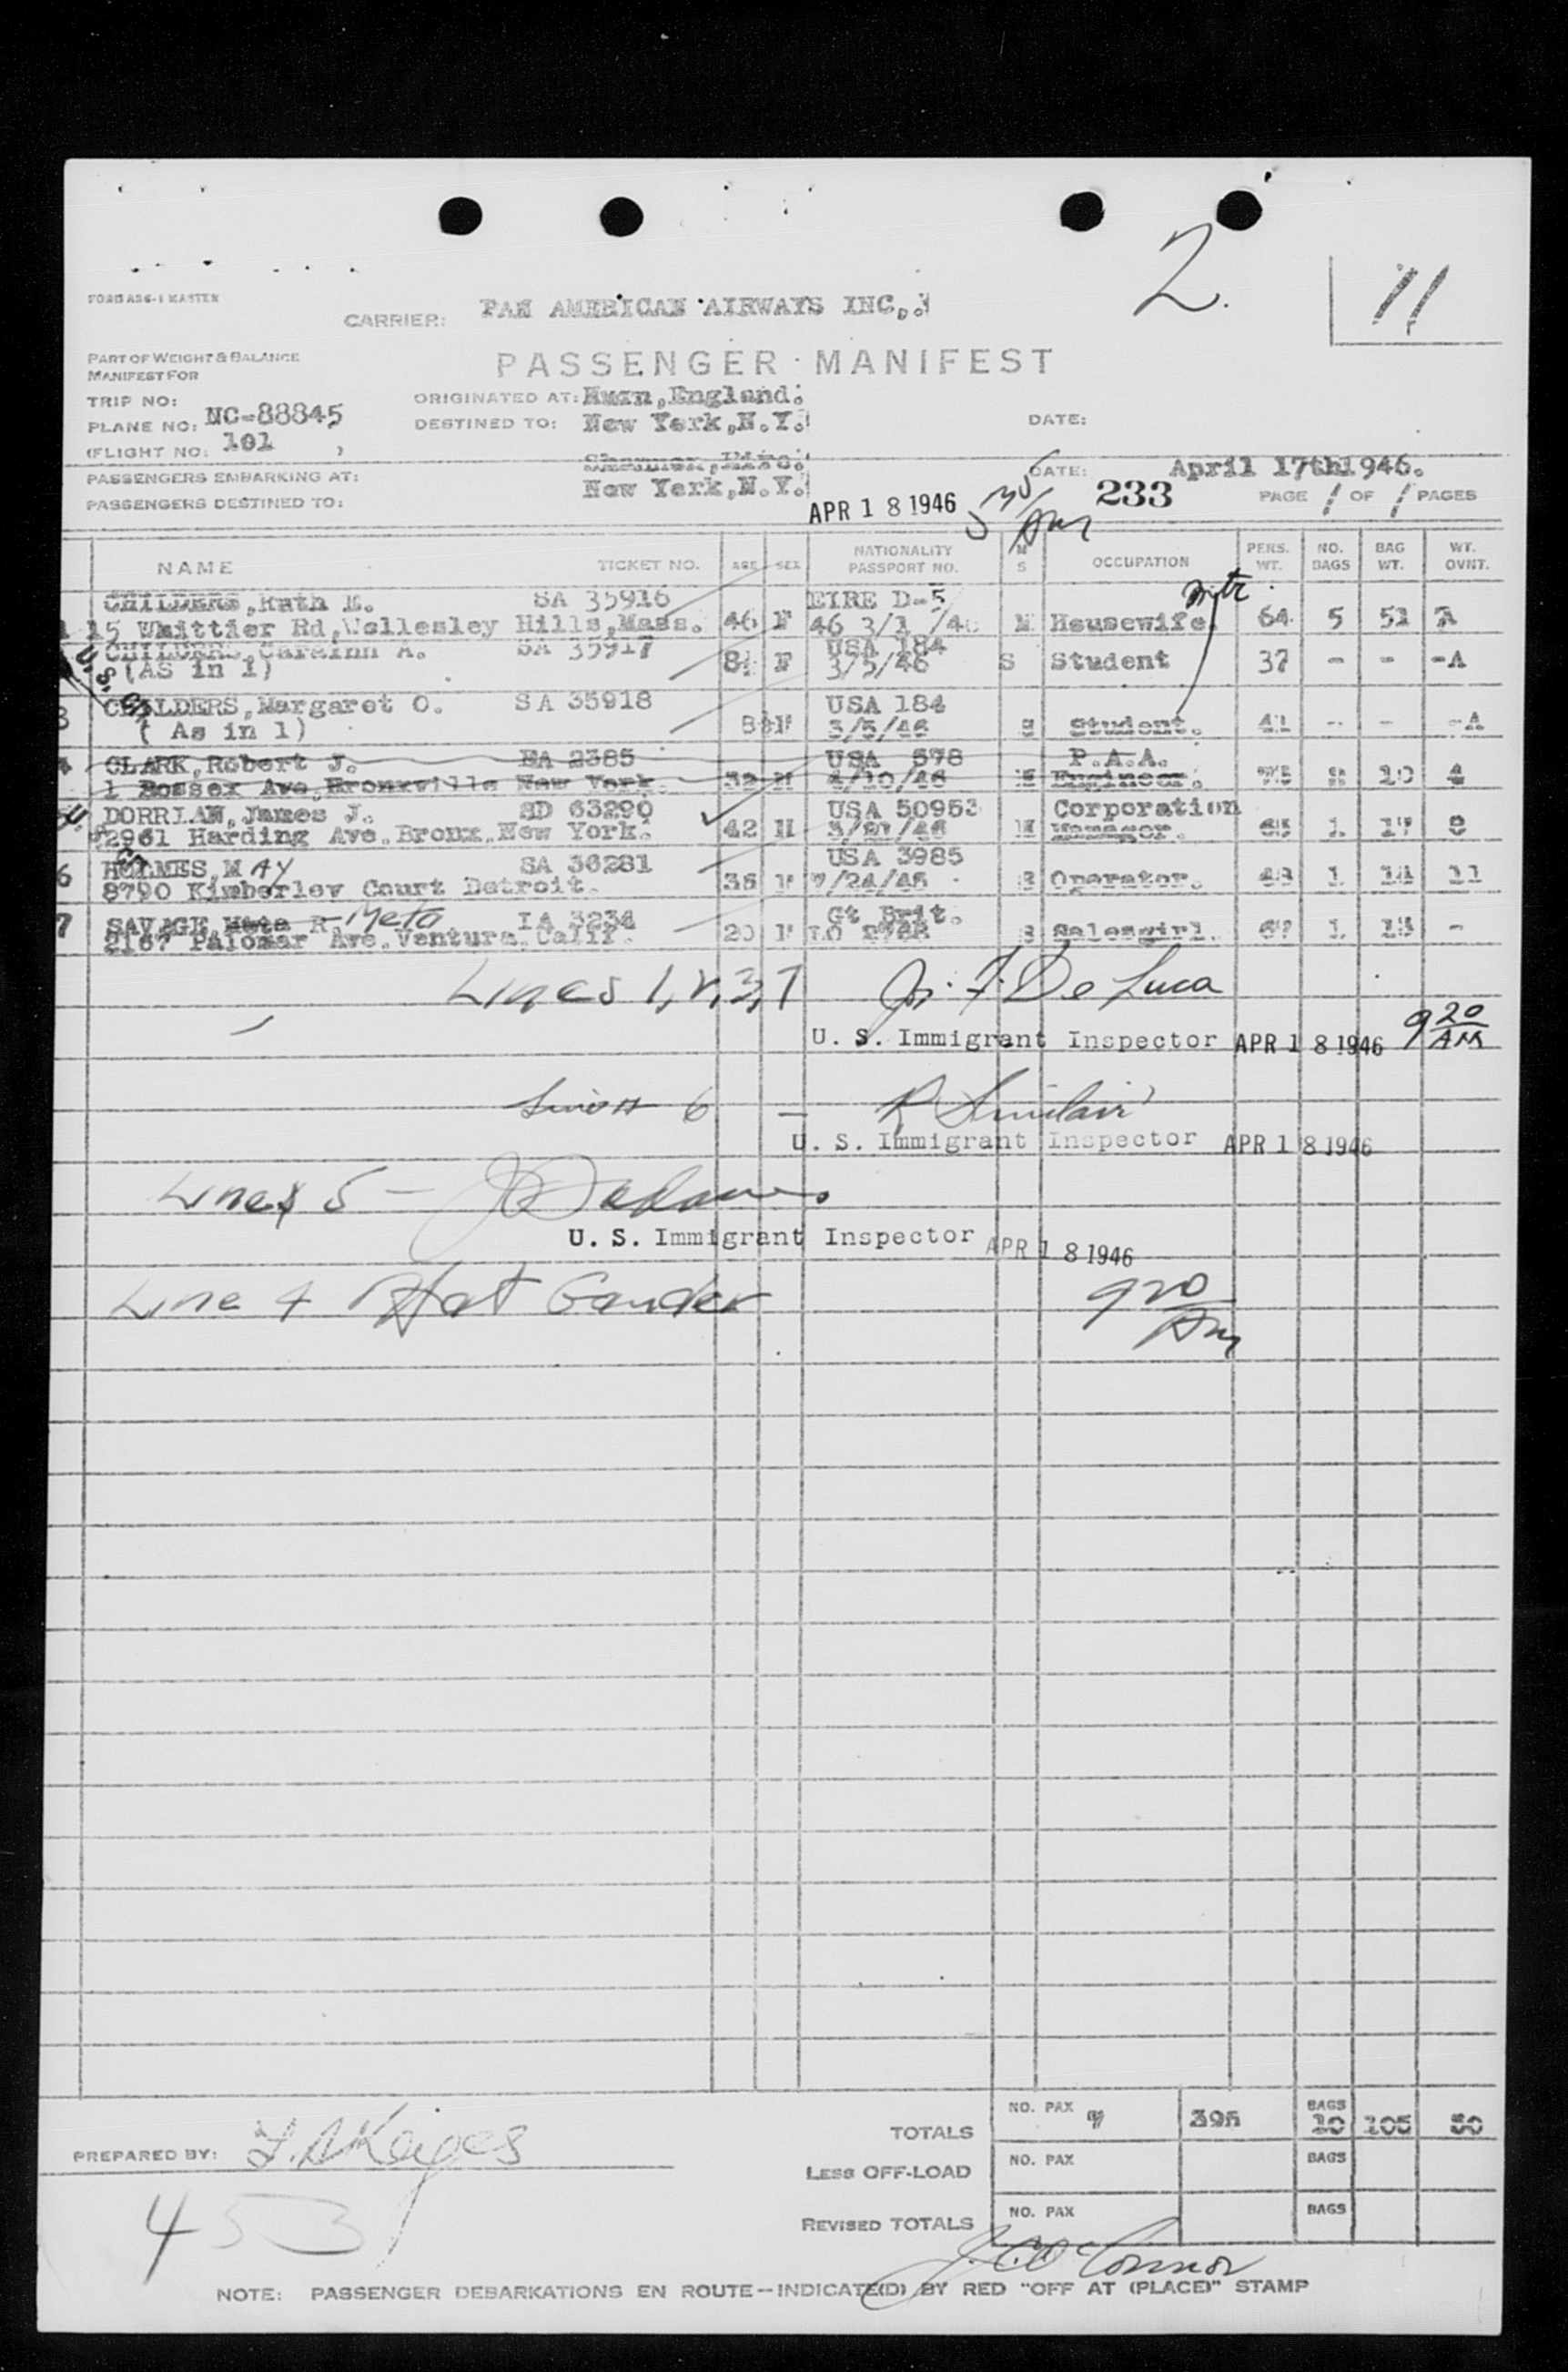 2.
11
FORM ASC-1 MASTER
CARRIER: PAN AMERICAN AIRWAYS INC.
PART OF WEIGHT & BALANCE
MANIFEST FOR
PASSENGER MANIFEST
TRIP NO:
ORIGINATED AT: Hurn, England.
PLANE NO: NC-88845
DESTINED TO: New York, N.Y.
DATE:
(FLIGHT NO: 101 )
PASSENGERS EMBARKING AT: Shannon, Eire.
DATE: April 17th 1946.
PASSENGERS DESTINED TO: New York, N.Y.
APR 18 1946
233
PAGE 1 OF 1 PAGES
NAME TICKET NO. AGE SEX NATIONALITY PASSPORT NO. M S OCCUPATION PERS. WT. NO. BAGS BAG WT. WT. OVNT.
CHILDERS, Ruth E. SA 35916 EIRE D-5
1 15 Whittier Rd, Wellesley Hills, Mass. 46 F M Housewife. 64 5 51 A
CHILDERS, A. SA 35917 USA 184
(AS in 1) 8½ F 3/5/46 S Student 37 - - -A
U.S.
3 CHILDERS, Margaret O. SA 35918 USA 184
( As in 1) 8½ F 3/5/46 S Student. 41 -- - -A
4 CLARK, Robert J. EA 2385 USA 578 P.A.A.
1 Bossex Ave, Bronxville New York. 32 M 4/10/46 M Engineer. 10 4
DORRIAN, James J. SD 63290 USA 50953 Corporation
2961 Harding Ave. Bronx. New York. 42 M M Manager. 1 17
6 HOLMES, MAY SA 36281 USA 3985
8790 Kimberley Court Detroit. 36 F S Operator. 1 14 11
7 SAVAGE, Meta R. Meta IA 3234 Gt Brit.
2167 Palomar Ave. Ventura. Calif. 20 F S Salesgirl. 1 -
Lines 1, 2, 3, 7 Jos. F. De Luca
U. S. Immigrant Inspector APR 18 1946 9 20 AM
6 - R Sinclair
U. S. Immigrant Inspector APR 18 1946
Lines 5 -
U. S. Immigrant Inspector APR 18 1946
Line 4 Off at Gander
9 20 AM
TOTALS NO. PAX 7 395 BAGS 10 105 50
PREPARED BY:
LESS OFF-LOAD NO. PAX BAGS
REVISED TOTALS NO. PAX BAGS
453
J. C. O'Connor
NOTE: PASSENGER DEBARKATIONS EN ROUTE—INDICATE(D) BY RED "OFF AT (PLACE)" STAMP